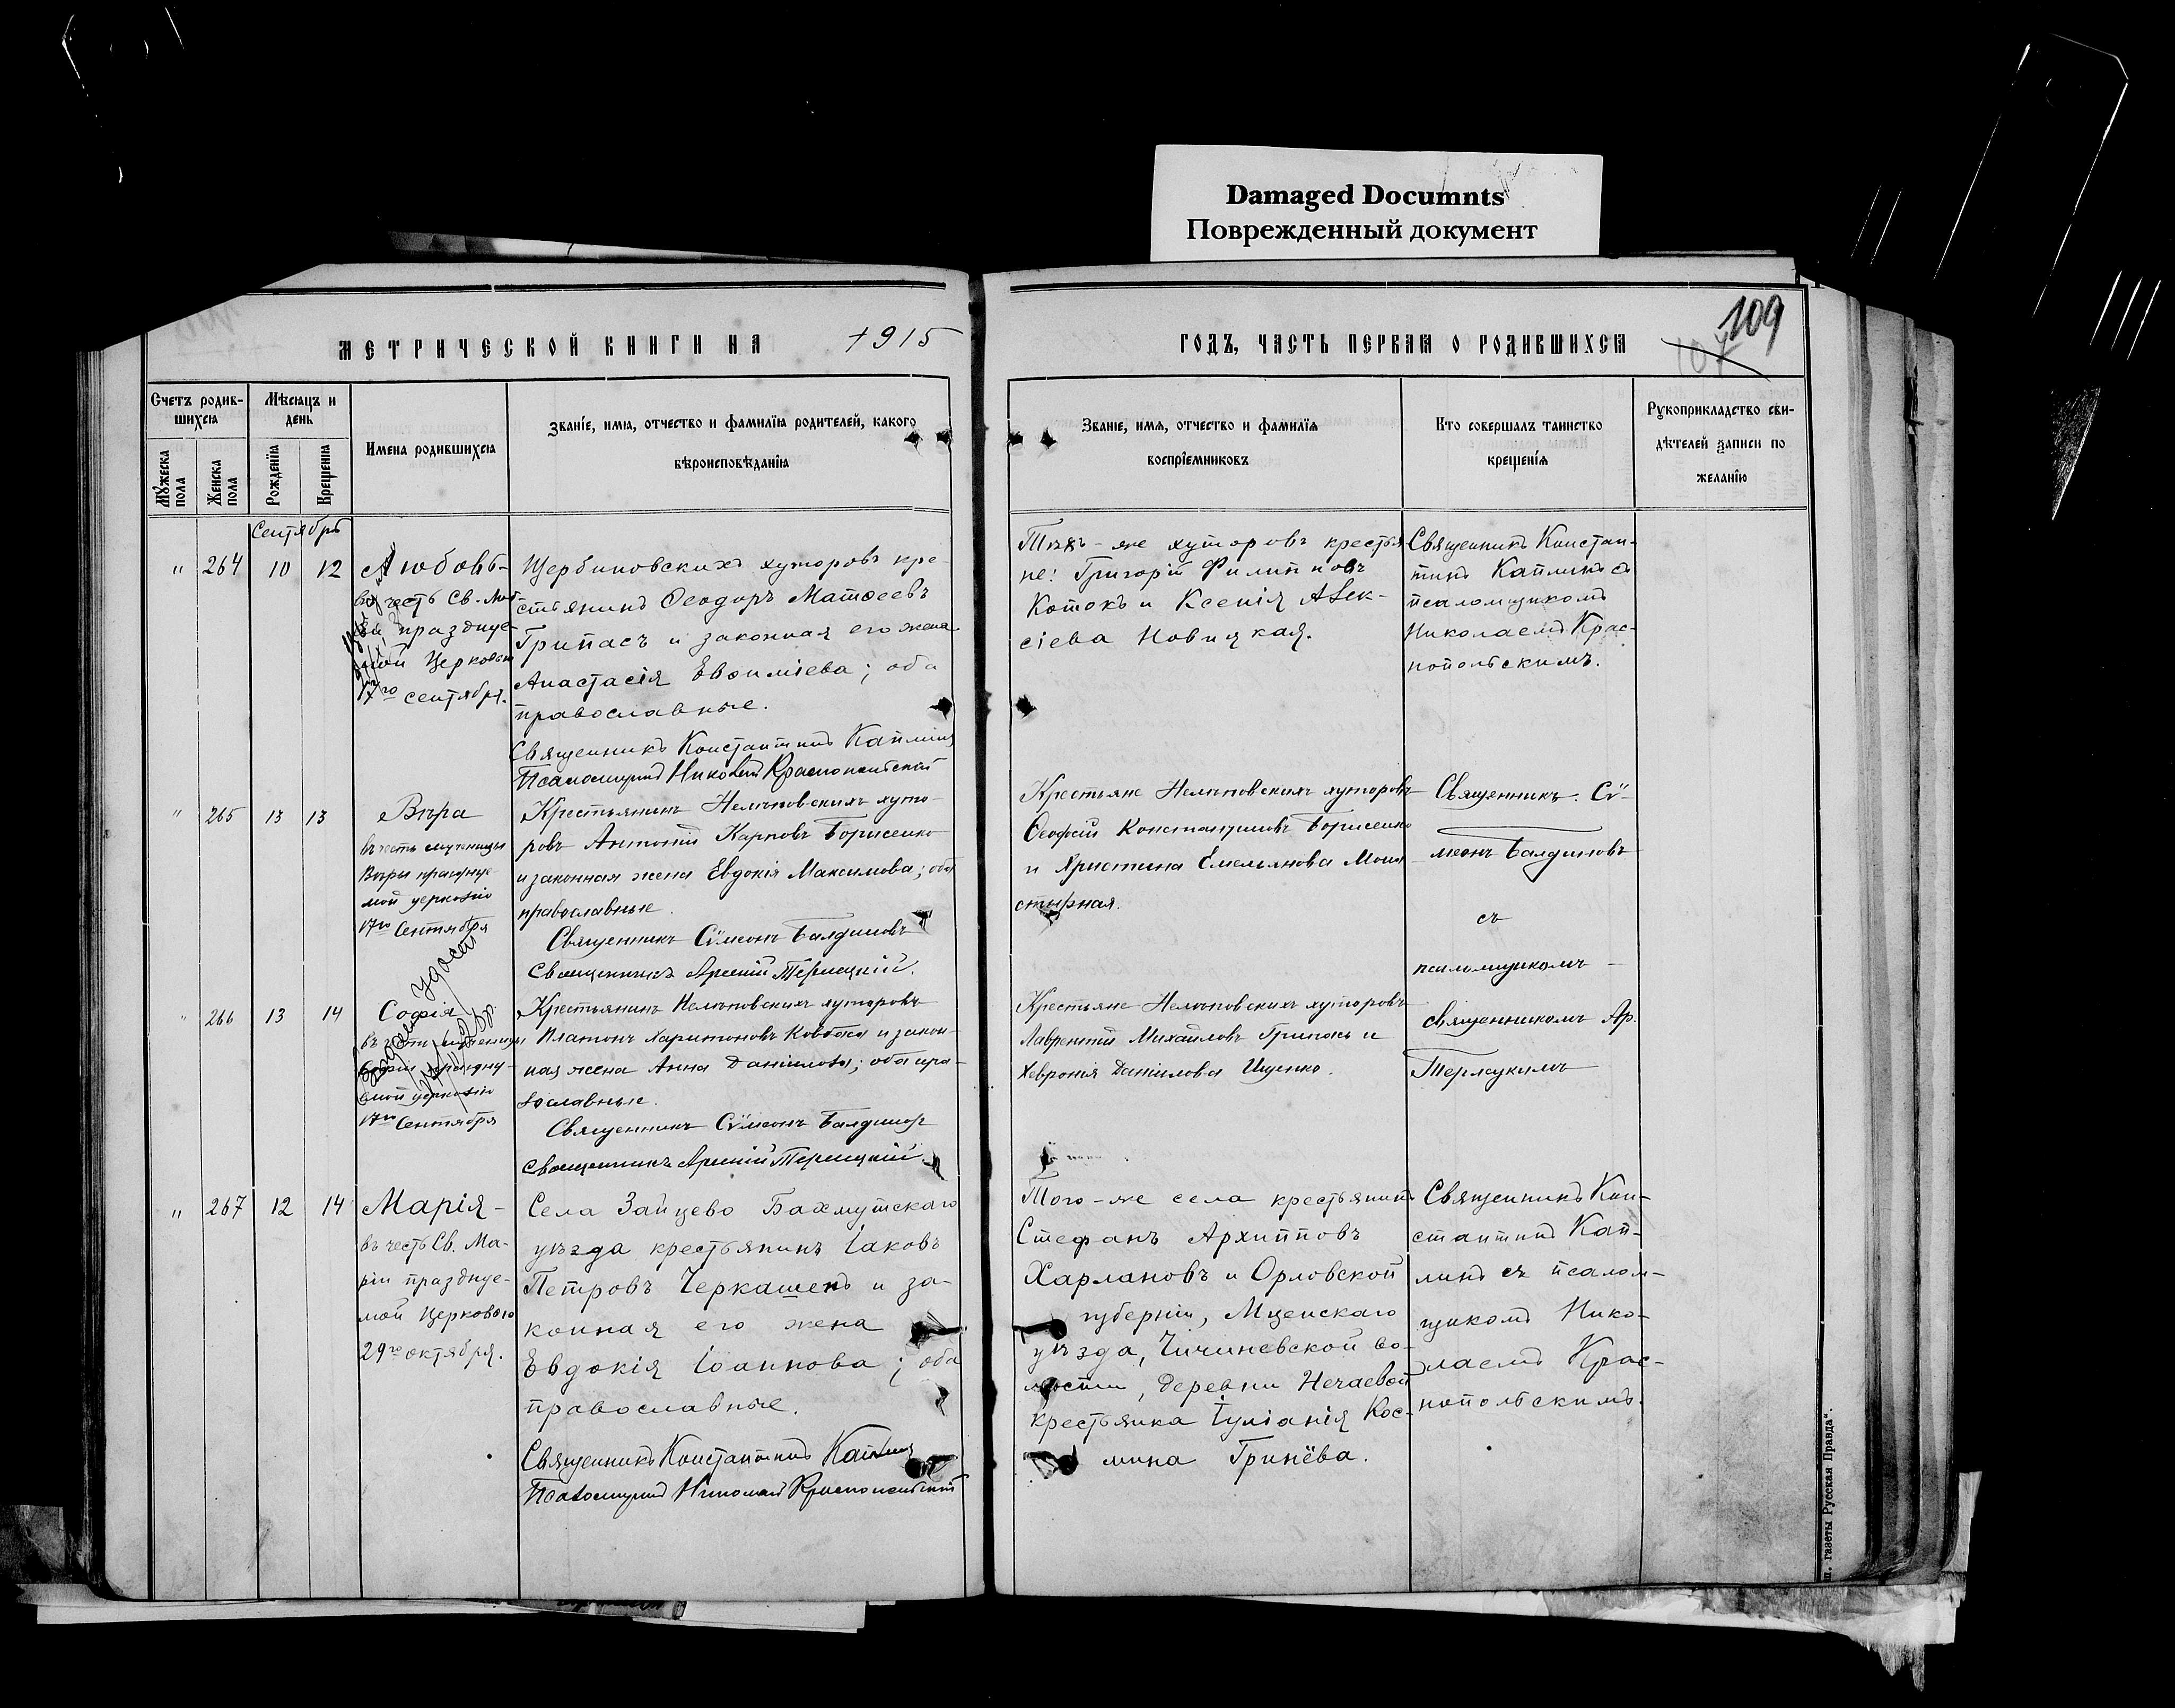 Damaged Documnts
Поврежденный документ
109
107
МЕТРИЧЕСКОЙ КНИГИ НА 1915
ГОДЪ, ЧАСТЬ ПЕРВАЯ О РОДИВШИХСЯ
Счетъ родив-
шихся
Мужеска
пола
Женска
пола
Мѣсяцъ и
день
Рожденія
Крещенія
Имена родившихся
Званіе, имя, отчество и фамилія родителей, какого
вѣроисповѣданія
Званіе, имя, отчество и фамилія
воспріемниковъ
Кто совершалъ таинство
крещенія
Рукоприкладство сви-
дѣтелей записи по
желанію
Сентябрь
" 264 10 12
Любовь-
въ честь Св. Люб-
ви празднуе-
мой Церковью
17го сентября.
Щербиновскихъ хуторовъ кре-
стьянинъ Ѳеодоръ Матѳеевъ
Грипасъ и законная его жена
Анастасія Евѳиміева; оба
православные.
Священникъ Константинъ Каплинъ
Псаломщикъ Николай Краснопольскій
Тѣхъ-же хуторовъ крестья
не: Григорій Филипповъ
Котокъ и Ксенія Алек-
сіева Новицкая.
Священникъ Констан-
тинъ Каплинъ съ
псаломщикомъ
Николаемъ Крас-
нопольскимъ.
" 265 13 13
Вѣра
въ честь мученицы
Вѣры празднуе
мой церковію
17го Сентября
Крестьянинъ Нелѣповскихъ хуто-
ровъ Антоній Карповъ Борисенко
и законная жена Евдокія Максимова; оба
православные.
Священникъ Сѵмеонъ Балдиновъ
Священникъ Арсеній Терлецкій.
Крестьяне Нелѣповскихъ хуторовъ
Ѳеофій Константиновъ Борисенко
и Христина Емельянова Мона-
стырная.
Священникъ Сѵ-
меонъ Балдиновъ
съ
псаломщикомъ -
священникомъ Ар.
Терлецкимъ
" 266 13 14
Софія
въ честь мученицы
Софіи празднуе-
мой церковію
17го Сентября
Крестьянинъ Нелѣповскихъ хуторовъ
Платонъ Харитоновъ Ковбаса и закон-
ная жена Анна Даніилова; оба пра-
вославные.
Священникъ Сѵмеонъ Балдиновъ
Священникъ Арсеній Терлецкій.
Крестьяне Нелѣповскихъ хуторовъ
Лаврентій Михайловъ Грипась и
Хевронія Даніилова Ищенко.
" 267 12 14
Марія-
въ честь Св. Ма-
ріи празднуе-
мой Церковью
29го октября.
Села Зайцево Бахмутскаго
уѣзда крестьянинъ Іаковъ
Петровъ Черкашенъ и за-
конная его жена
Евдокія Іоаннова; оба
православные.
Священникъ Константинъ Каплинъ
Псаломщикъ Николай Краснопольскій
Того-же села крестьянинъ
Стефанъ Архипповъ
Харлановъ и Орловской
губерніи, Мценскаго
уѣзда, Чичиневской во-
лости, деревни Нечаевой
крестьянка Іуліанія Кос-
мина Гринёва.
Священникъ Кон-
стантинъ Кап-
линъ съ псалом-
щикомъ Нико-
лаемъ Крас-
нопольскимъ.
п. газеты Русская Правда".